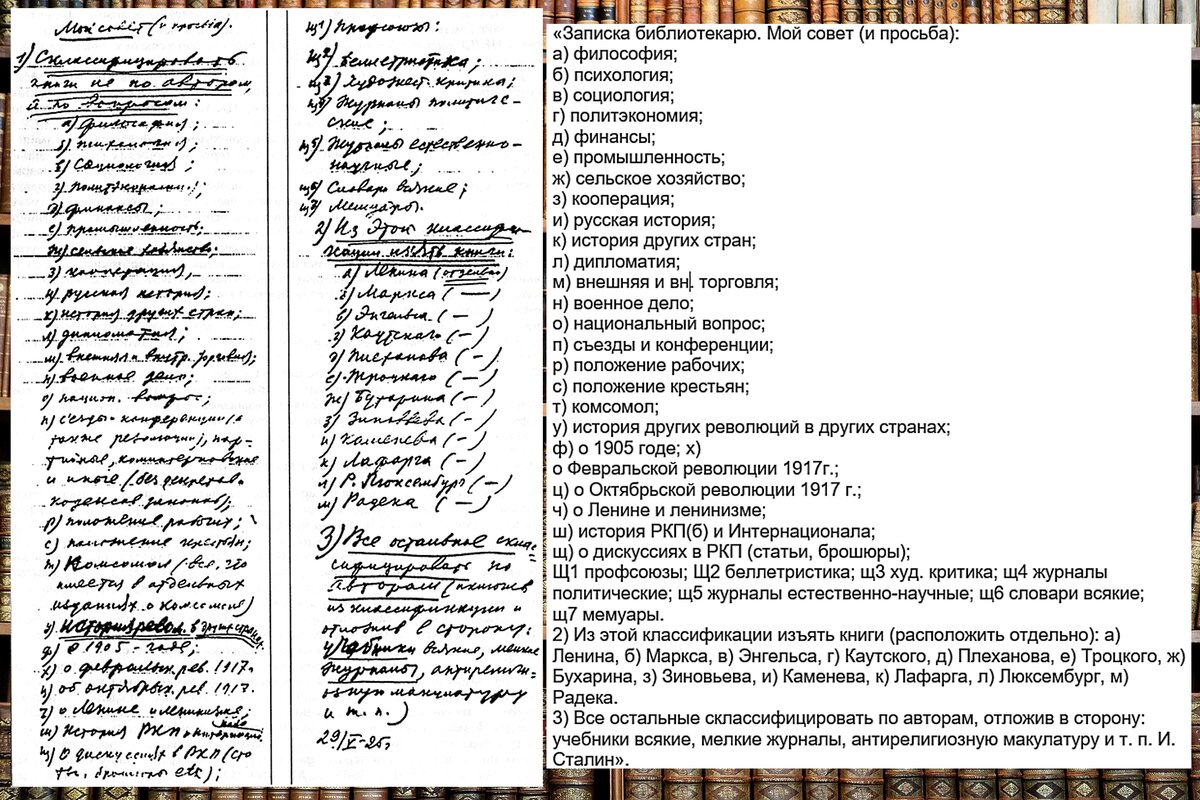 Мой совет (и просьба):
1) Склассифицировать
книги не по авторам,
а по вопросам:
а) философия;
б) психология;
в) социология;
г) политэкономия;
д) финансы;
е) промышленность;
ж) сельское хозяйство;
з) кооперация;
и) русская история;
к) история других стран;
л) дипломатия;
м) внешняя и внутр. торговля;
н) военное дело;
о) национ. вопрос;
п) съезды и конференции (а
также резолюции), пар-
тийные, коминтерновские
и иные (без декретов
и кодексов законов);
р) положение рабочих;
с) положение крестьян;
т) Комсомол (все, что
имеется в отдельных
изданиях о комсомоле)
у) История револ. в других странах;
ф) о 1905 годе;
х) о февральск. рев. 1917.
ц) об октябрьск. рев. 1917.
ч) о Ленине и ленинизме;
ш) История РКП и Интернационала;
щ) О дискуссиях в РКП (ста-
тьи, брошюры etc);
щ1) Профсоюзы:
щ2) беллетристика;
щ3) художест. критика;
щ4) Журналы политиче-
ские;
щ5) Журналы естественно-
научные;
щ6) Словари всякие;
щ7) Мемуары.
2) Из этой классифи-
кации изъять книги:
а) Ленина (отдельно)
б) Маркса ( — )
в) Энгельса ( — )
г) Каутского ( — )
д) Плеханова ( — )
е) Троцкого ( — )
ж) Бухарина ( — )
з) Зиновьева ( — )
и) Каменева ( — )
к) Лафарга ( — )
л) Р. Люксембург ( — )
м) Радека ( — )
3) Все остальное склас-
сифицировать по
авторам (исключив
из классификации и
отложив в сторону:
учебники всякие, мелкие
журналы, антирелигиоз-
ную макулатуру
и т. п.)
29/V-25.
«Записка библиотекарю. Мой совет (и просьба):
а) философия;
б) психология;
в) социология;
г) политэкономия;
д) финансы;
е) промышленность;
ж) сельское хозяйство;
з) кооперация;
и) русская история;
к) история других стран;
л) дипломатия;
м) внешняя и вн. торговля;
н) военное дело;
о) национальный вопрос;
п) съезды и конференции;
р) положение рабочих;
с) положение крестьян;
т) комсомол;
у) история других революций в других странах;
ф) о 1905 годе; х)
о Февральской революции 1917г.;
ц) о Октябрьской революции 1917 г.;
ч) о Ленине и ленинизме;
ш) история РКП(б) и Интернационала;
щ) о дискуссиях в РКП (статьи, брошюры);
Щ1 профсоюзы; Щ2 беллетристика; щ3 худ. критика; щ4 журналы
политические; щ5 журналы естественно-научные; щ6 словари всякие;
щ7 мемуары.
2) Из этой классификации изъять книги (расположить отдельно): а)
Ленина, б) Маркса, в) Энгельса, г) Каутского, д) Плеханова, е) Троцкого, ж)
Бухарина, з) Зиновьева, и) Каменева, к) Лафарга, л) Люксембург, м)
Радека.
3) Все остальные склассифицировать по авторам, отложив в сторону:
учебники всякие, мелкие журналы, антирелигиозную макулатуру и т. п. И.
Сталин».